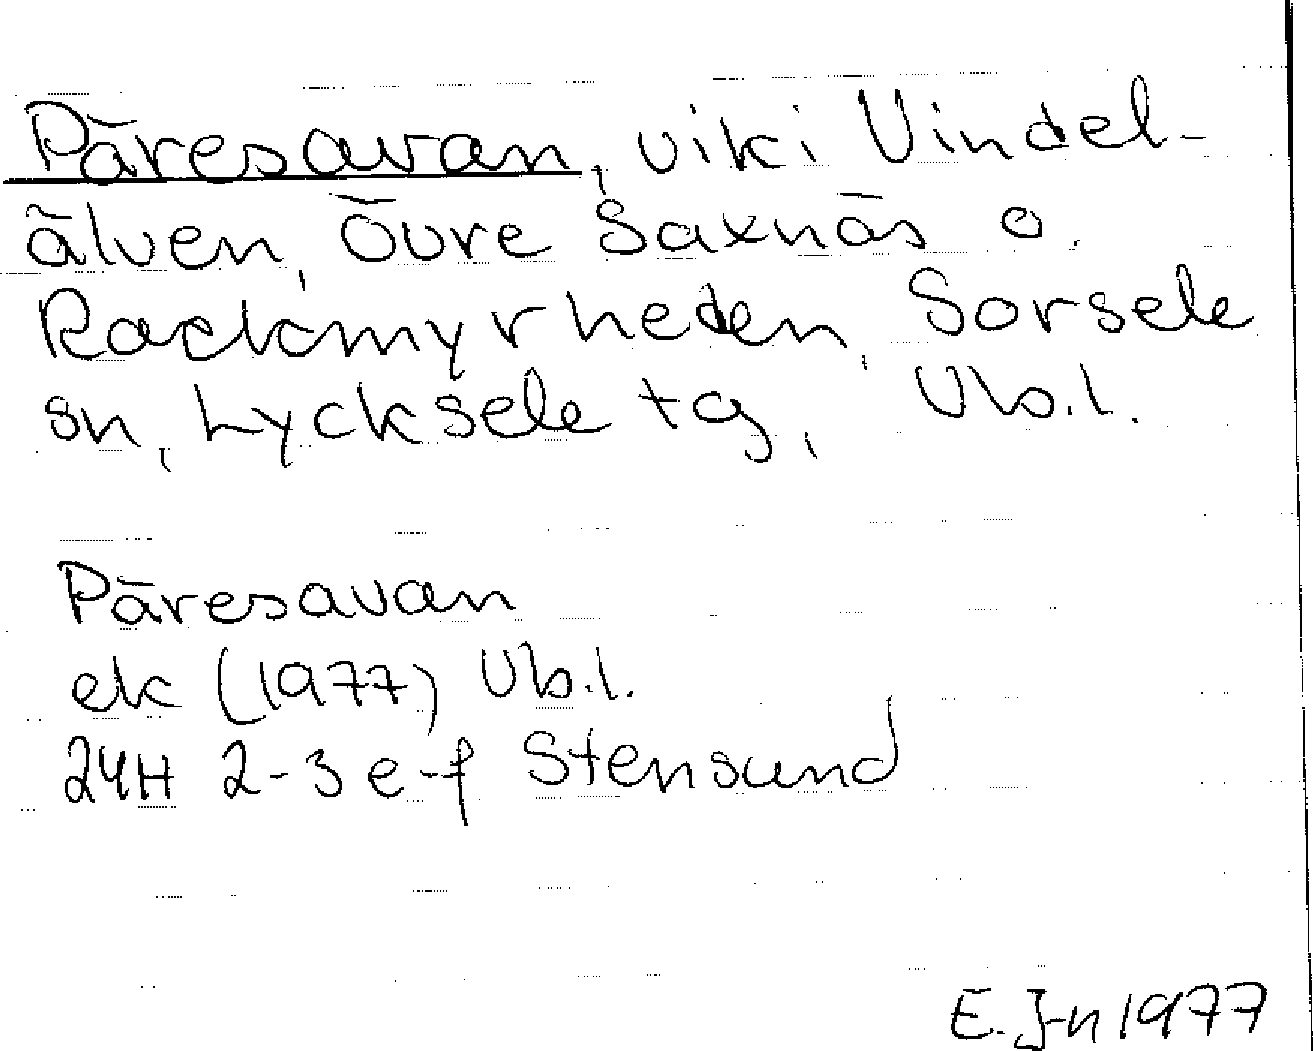 Päresavan, vik i Vindel-
älven, Övre Saxnäs o.
Rackmyrheden, Sorsele
sn, Lycksele tg, Vb.l.
Päresavan
ek (1977) Vb.l.
24H 2-3 e-f Stensund
E. J-n 1977